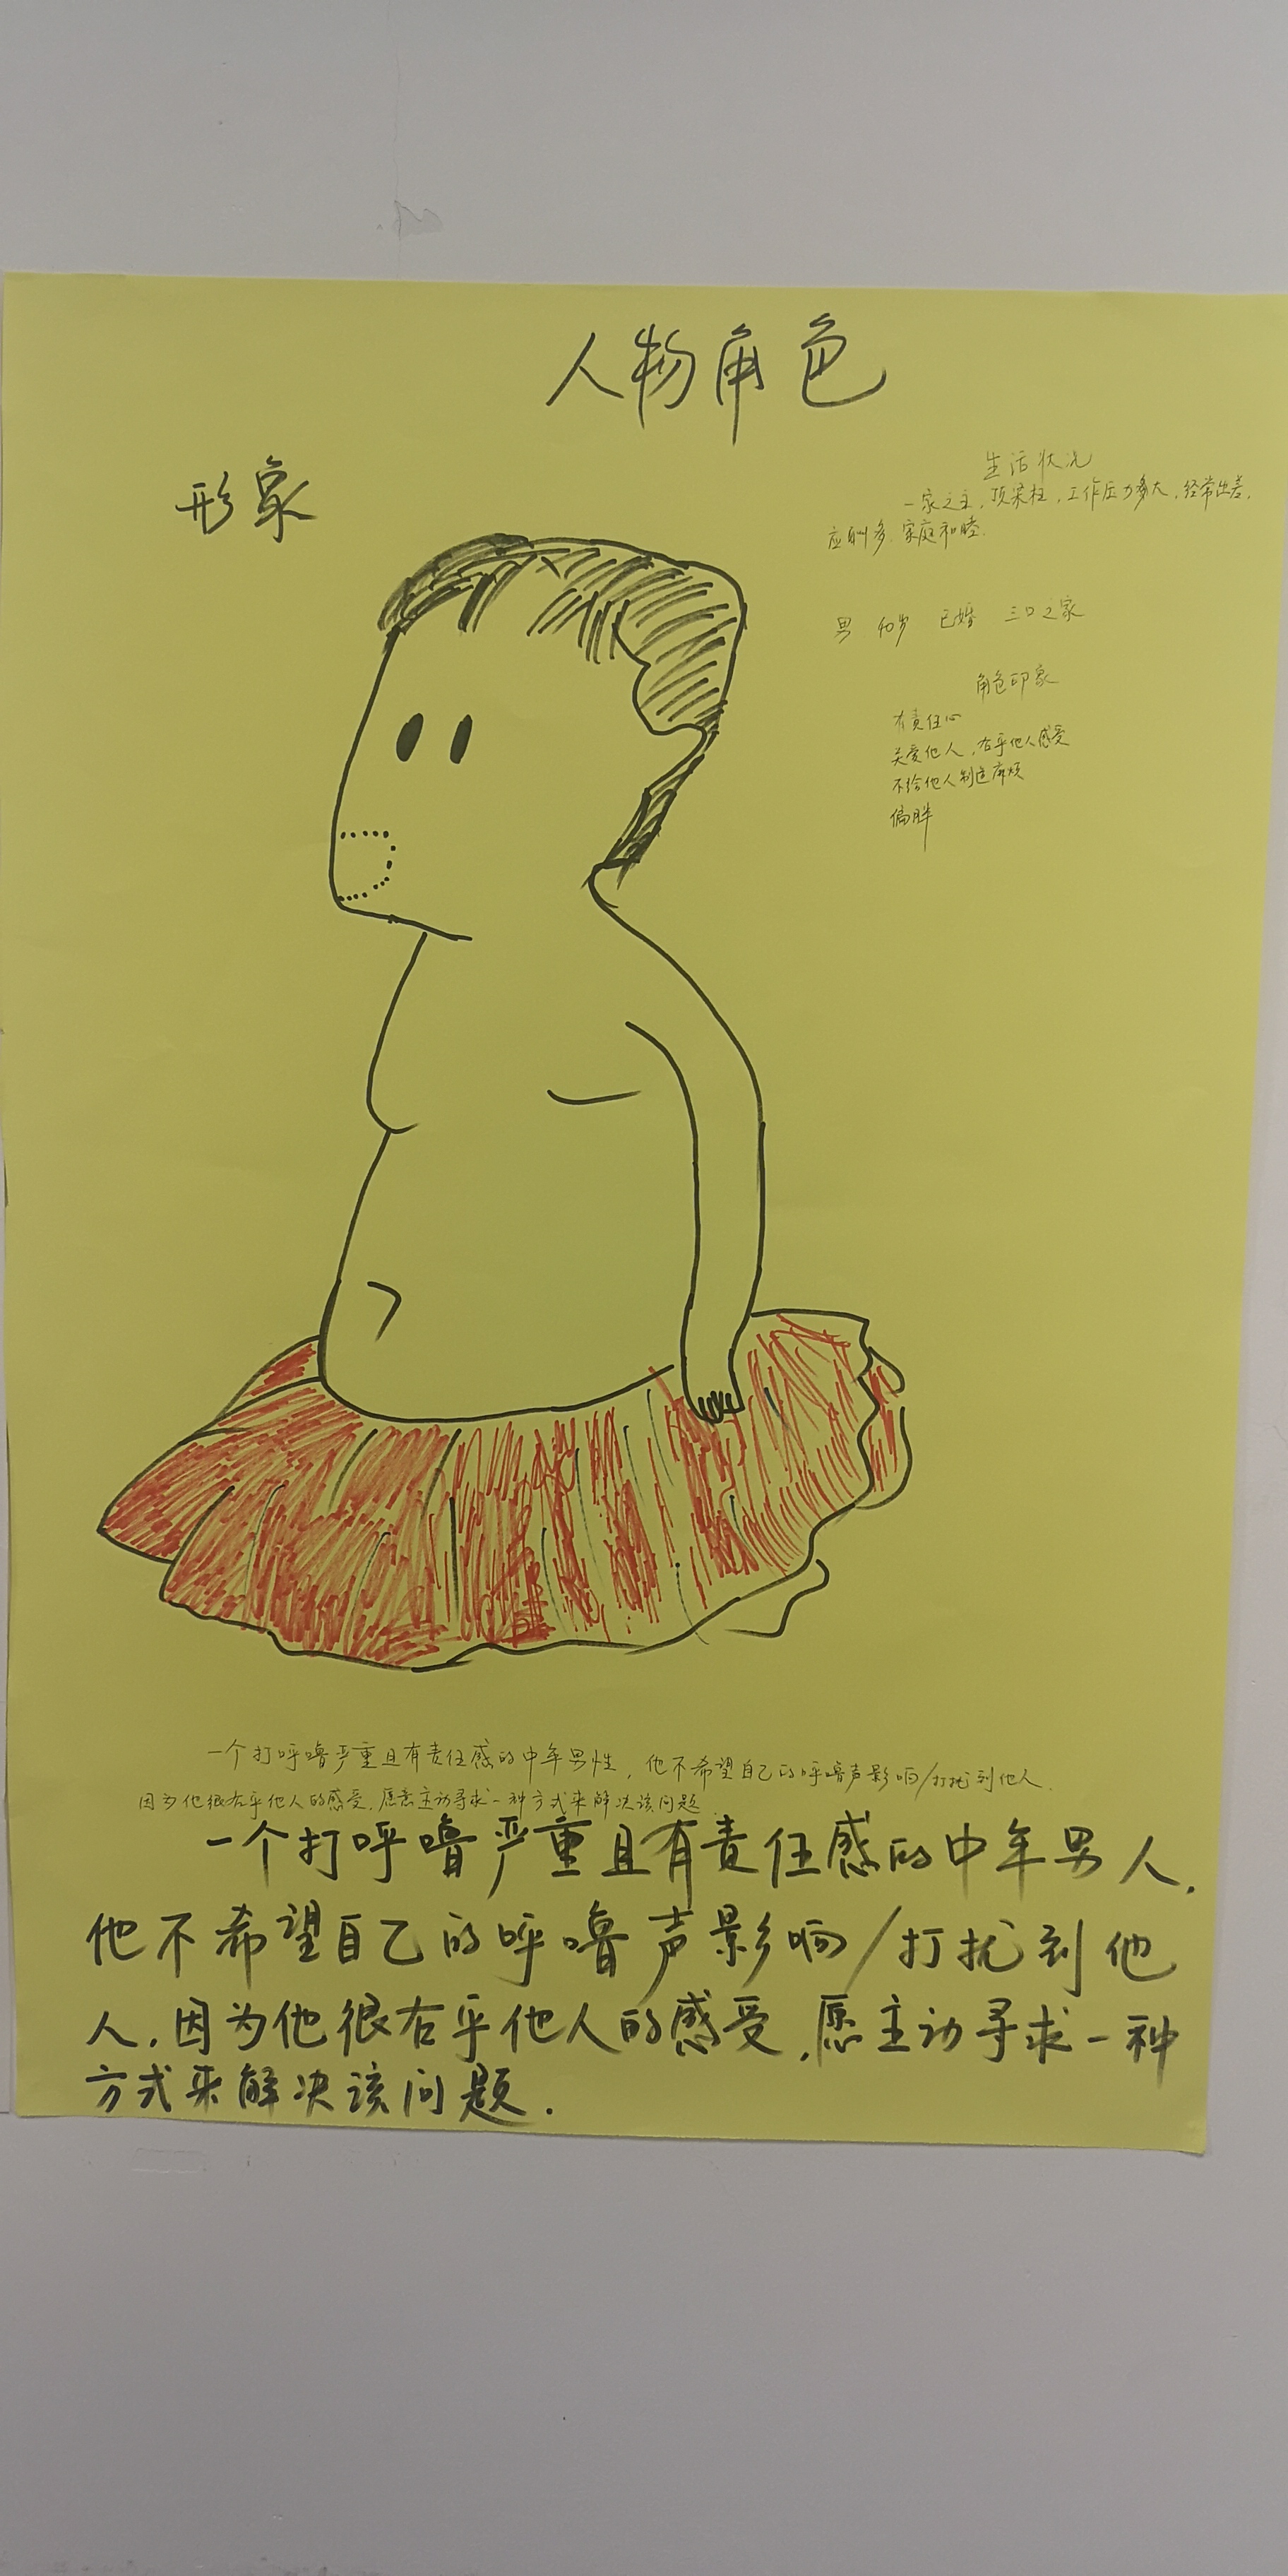 人物角色
形象
生活状况
一家之主，顶梁柱，工作压力大，经常出差，
应酬多，家庭和睦.
男 40岁 已婚 三口之家
角色印象
有责任心
关爱他人，在乎他人感受
不给他人制造麻烦
偏胖
一个打呼噜严重且有责任感的中年男性，他不希望自己的呼噜声影响/打扰到他人，
因为他很在乎他人的感受，愿意主动寻求一种方式来解决该问题
一个打呼噜严重且有责任感的中年男人，
他不希望自己的呼噜声影响/打扰到他
人，因为他很在乎他人的感受，愿主动寻求一种
方式来解决该问题.